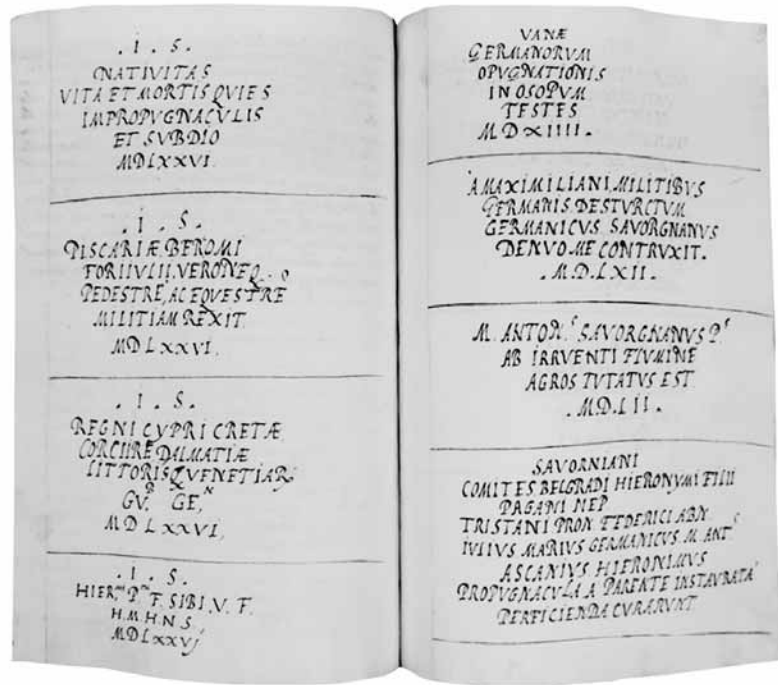 . I . S .
NATIVITAS
VITA ET MORTIS QVIES
IMPROPVGNACVLIS
ET SVBDIO
MDLXXVI
. I . S .
PISCARIÆ BEROMI
FORIIVLII, VERONEQ. O
PEDESTRE, AC EQVESTRE
MILITIAM REXIT
MDLXXVI
. I . S .
REGNI CYPRI CRETÆ
CORCIRE DALMATIÆ
LITTORISQ VENETIAR
GV.R GE.N
MDLXXVI,
. I . S .
HIER.mi P.ni F. SIBI. V. F.
H. M. H. N. S.
MDLXXVj
VANÆ
GERMANORVM
OPVGNATIONIS
IN OSOPVM
TESTES
M D XIIII.
A MAXIMILIANI, MILITIBVS
GERMANIS DESTVRCTVM
GERMANICVS SAVORGNANVS
DENVO ME CONTRVXIT.
. M.D.LXII.
M. ANTON.s SAVORGNANVS P.s
AB IRRVENTI FLVMINE
AGROS TVTATVS EST
. M.D.LII.
SAVORNIANI
COMITES BELGRADI HIERONYMI FILII
PAGANI NEP.
TRISTANI PRON FEDERICI ABN.
IVLIVS MARIVS GERMANICVS M. ANT.s
ASCANIVS HIERONIMVS
PROPVGNACVLA A PARENTE INSTAVRATA
PERFICIENDA CVRARVNT